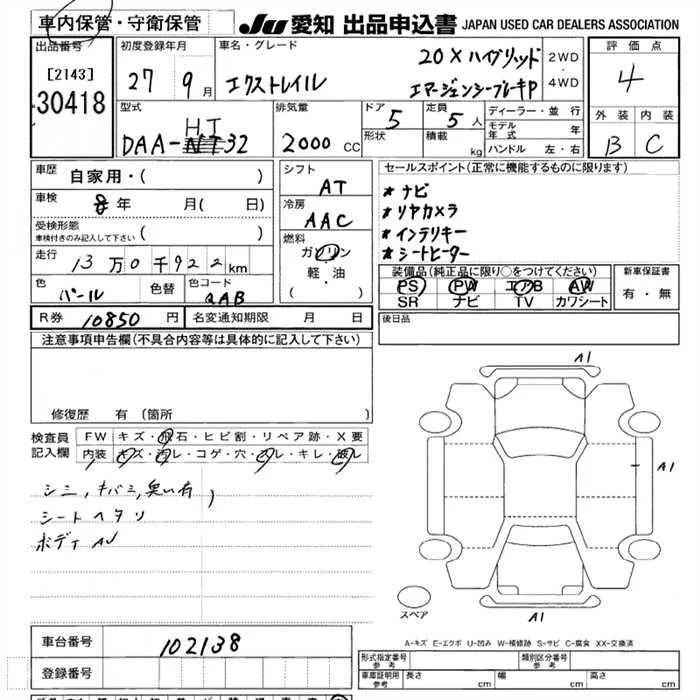 車内保管・守衛保管
JU 愛知 出品申込書 JAPAN USED CAR DEALERS ASSOCIATION
出品番号
[2143]
30418
初度登録年月
27 9月
車名・グレード
エクストレイル
20Xハイブリッド
エマージェンシーブレーキP
2WD・4WD
評価点
4
外装 内装
B C
型式
HT
DAA-NT32
排気量
2000 CC
ドア 5
形状
定員 5人
積載 kg
ディーラー・並行
モデル年式 年
ハンドル 左・右
車歴 自家用・( )
車検 8年 月( 日)
受検形態
車検付きのみ記入して下さい ( )
走行 13万0千922km
色 パール
色替
色コード QAB
シフト AT
冷房 AAC
燃料
ガソリン
軽・油
( )
セールスポイント(正常に機能するものに限ります)
★ナビ
★リヤカメラ
★インテリキー
★シートヒーター
装備品(純正品に限り○をつけてください)
PS PW エアB AW
SR ナビ TV カワシート
新車保証書
有・無
R券 10850円 名変通知期限 月 日
後日品
注意事項申告欄(不具合内容等は具体的に記入して下さい)
修復歴 有(箇所
検査員記入欄
FW キズ・飛石・ヒビ割・リペア跡・X要
内装 キズ・汚レ・コゲ・穴・スレ・キレ・破レ
シミ, キバミ, 臭い有
シートヘタリ
ボディ AU
A1
A1
A1
スペア
A-キズ E-エクボ U-凹み W-補修跡 S-サビ C-腐食 XX-交換済
車台番号 102138
登録番号
形式指定番号 参考
類別区分番号 参考
車庫証明用 参考 長さ cm 幅 cm 高さ cm